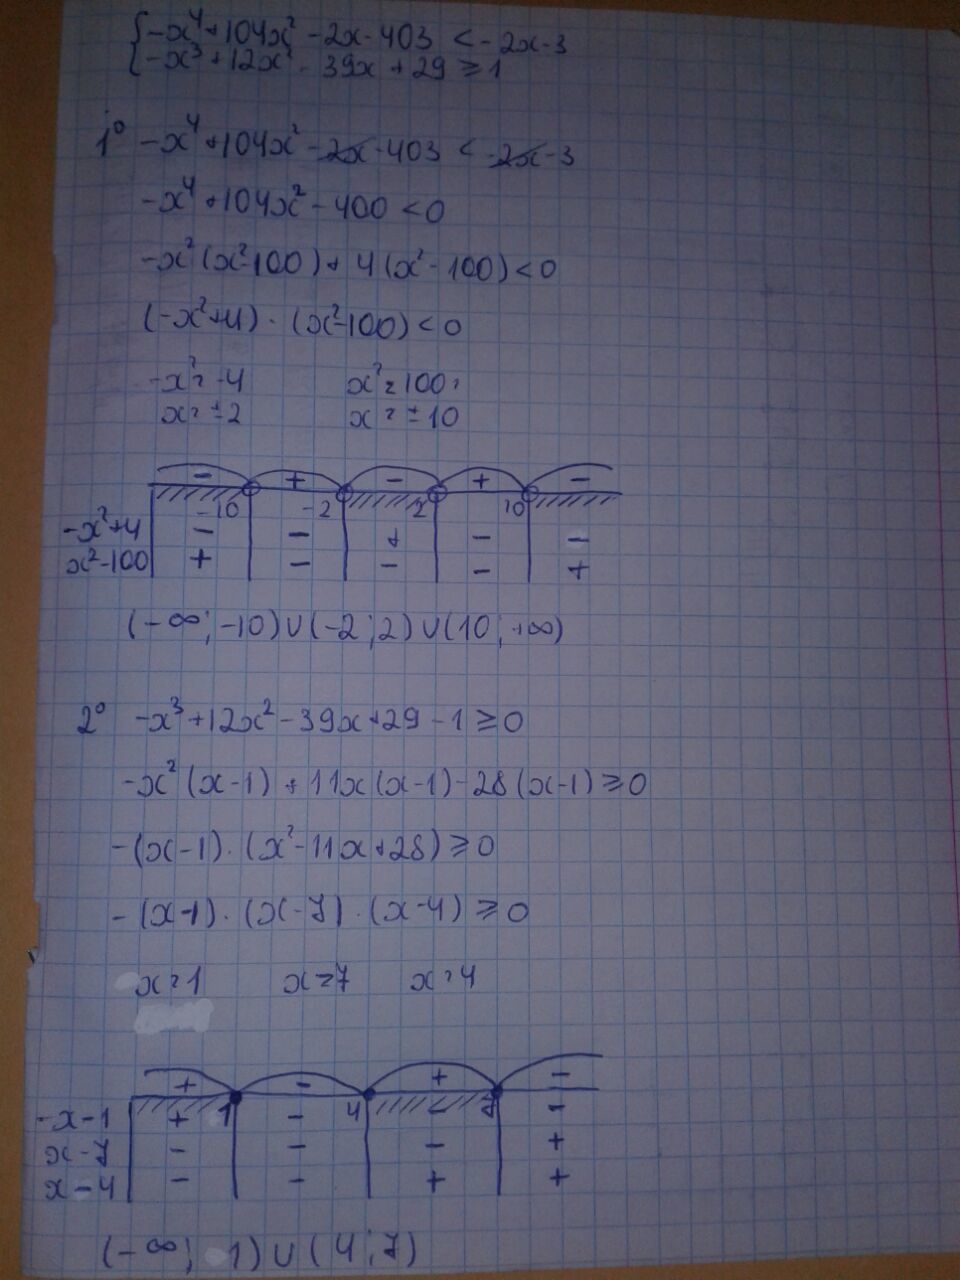 {-x⁴+104x²-2x-403 < -2x-3
{-x³+12x²-39x+29 ≥ 1
1° -x⁴+104x²-2x-403 < -2x-3
-x⁴+104x²-400 < 0
-x²(x²-100)+4(x²-100) < 0
(-x²+4)·(x²-100) < 0
-x²=-4 x²=100
x=±2 x=±10
- + - + -
-10 -2 2 10
-x²+4 - - + - -
x²-100 + - - - +
(-∞;-10)∪(-2;2)∪(10;+∞)
2° -x³+12x²-39x+29-1 ≥ 0
-x²(x-1)+11x(x-1)-28(x-1) ≥ 0
-(x-1)·(x²-11x+28) ≥ 0
-(x-1)·(x-7)·(x-4) ≥ 0
x=1 x=7 x=4
+ - + -
1 4 7
-x-1 + - - -
x-7 - - - +
x-4 - - + +
(-∞; 1)∪(4;7)